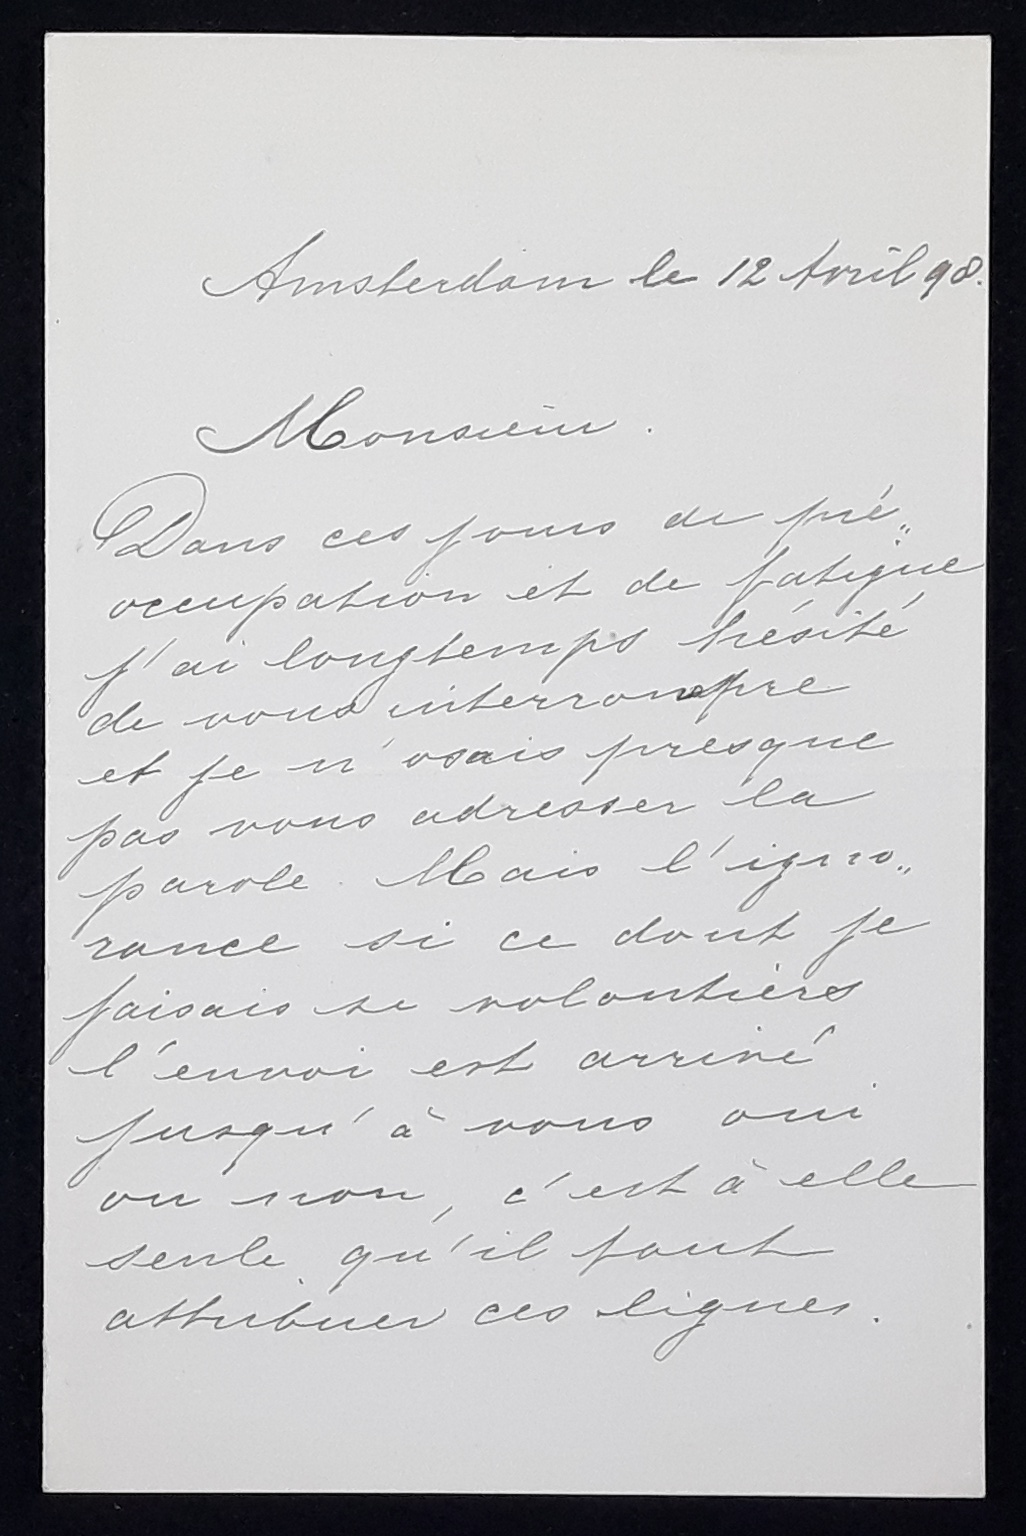 Amsterdam le 12 Avril 98.
Monsieur.
Dans ces jours de pré„
occupation et de fatigue
j'ai longtemps hésité
de vous interrompre
et je n'osais presque
pas vous adresser la
parole. Mais l'igno„
rance si ce dont je
faisais si volontières
l'envoi est arrivé
jusqu'à vous oui
ou non, c'est à elle
seule qu'il faut
attribuer ces lignes.